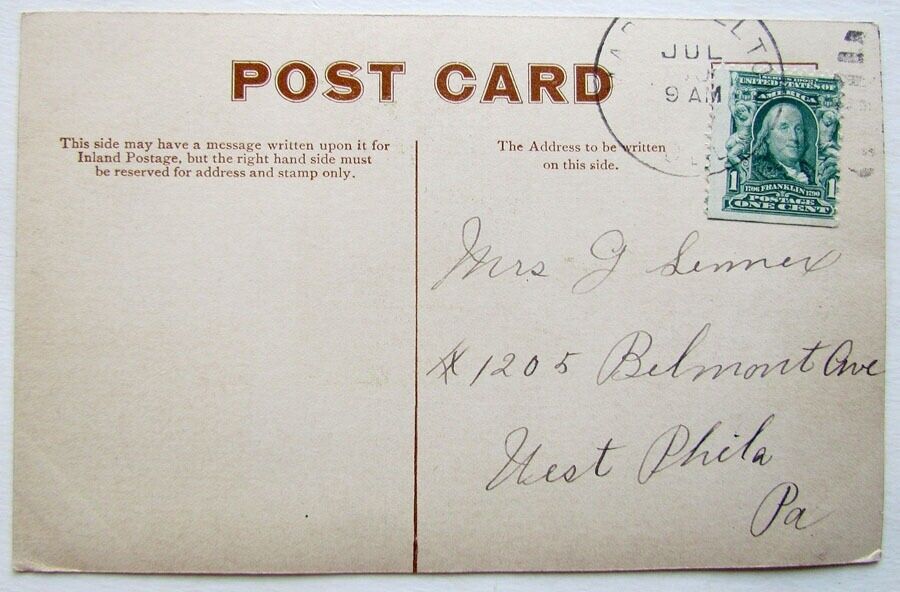 POST CARD
This side may have a message written upon it for
Inland Postage, but the right hand side must
be reserved for address and stamp only.
The Address to be written
on this side.
JUL
9 AM
SERIES 1902
UNITED STATES OF
AMERICA
1 1706 FRANKLIN 1790 1
POSTAGE
ONE CENT
Mrs G Lennex
# 1205 Belmont Ave
West Phila
Pa